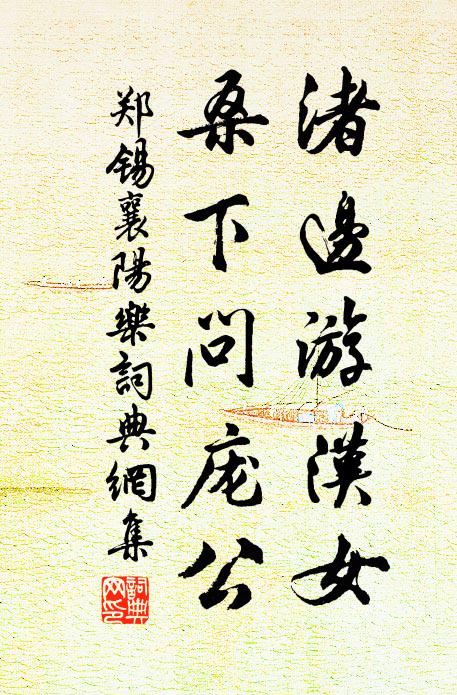 渚邊游漢女
桑下問庞公
郑锡襄陽樂詞典網集
詞典
网印